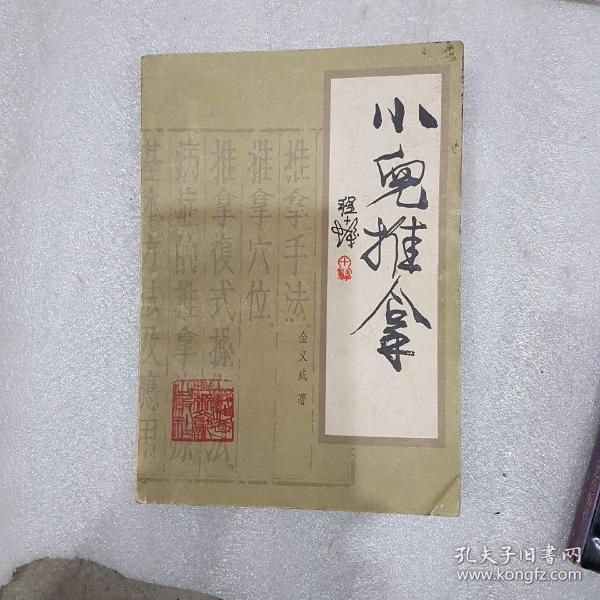 小兒推拿
程十發
金义成 著
推拿手法
推拿穴位。
推拿復式操
病症的推拿
基本方法及應用
孔夫子旧书网
www.kongfz.com